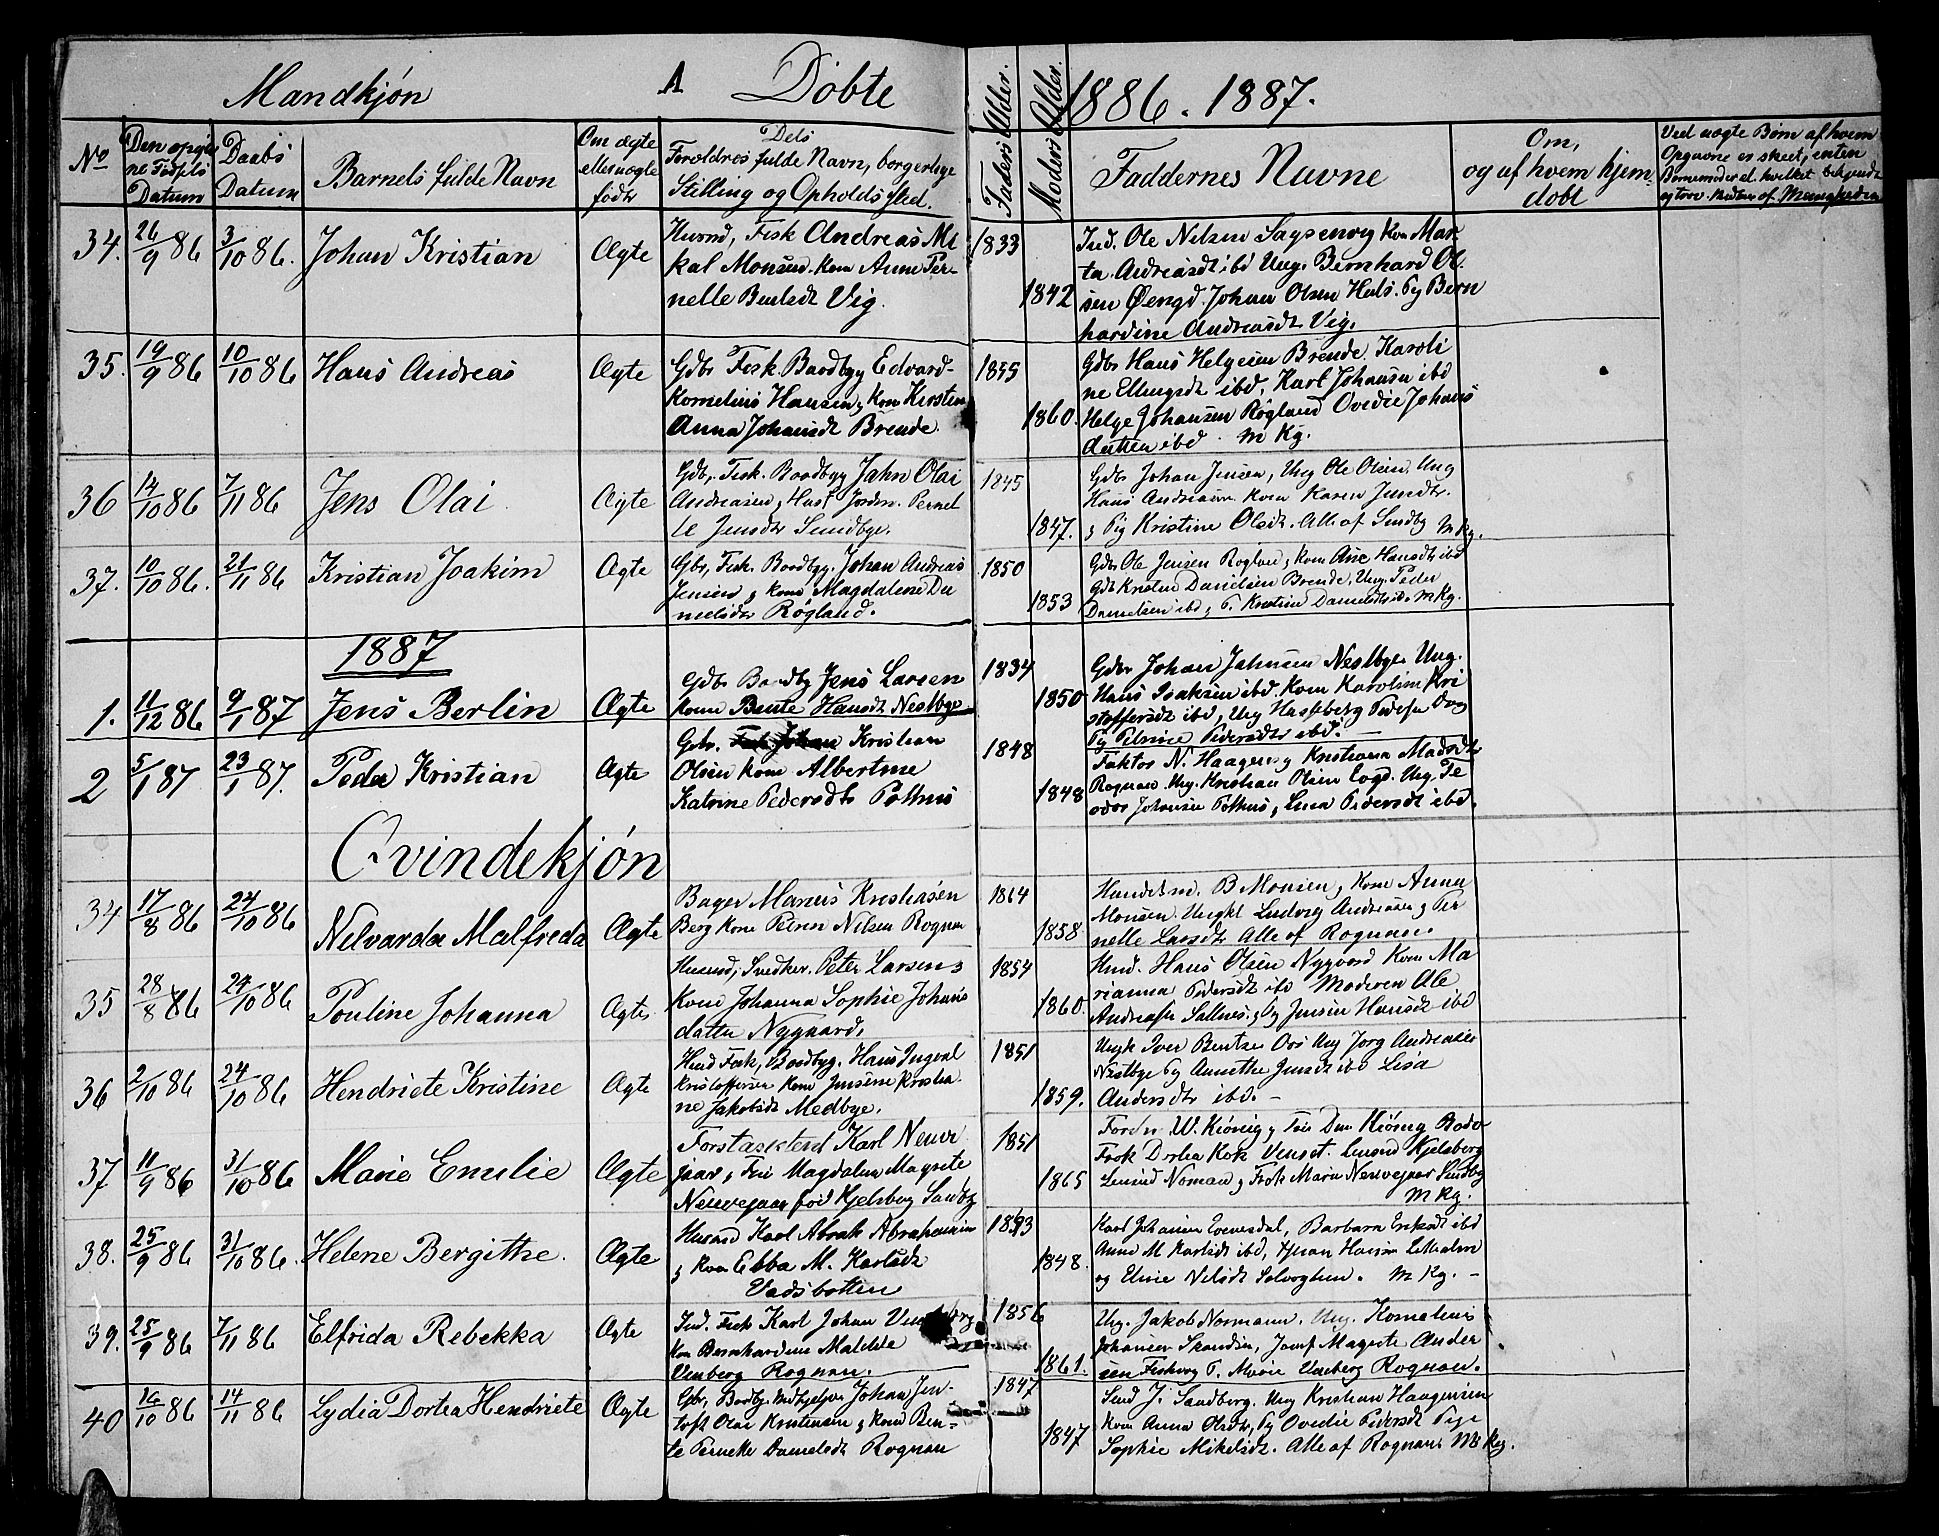 Mandkjøn A Døbte 1886. 1887.
No
Den opgivne Fødsels Datum
Daabs Datum
Barnets fulde Navn
Om ægte eller uægte født
Dets Forældres fulde Navn, borgerlige Stilling og Opholdssted.
Faders Alder.
Moders Alder.
Faddernes Navne
Om, og af hvem hjemdøbt
Ved uægte Børn af hvem Opgavne er skeet, enten
34. 26/9 86 3/10 86. Johan Kristian Ægte
Husmd, Fisk Andreas Mi
kal Monsen. kone Anne Per-
nelle Bentsdt Vig.
1833
1842
Ind. Ole Nilsen Saxenvig Kone Mar
ta Andreasdt ibd Ung. Bernhard Ol
sen Øengd. Johan Olsen Hals. Pg Bern
hardine Andreasdt Vig.
35. 19/9 86 10/10 86 Hans Andreas Ægte
Gdbr Fisk. Baadbyg Edvard
Kornelius Hansen, Kone Kirsten
Anna Johansdt Brende.
1855
1860.
Gdbr Hans Helgesen Brende. Karoli
ne Ellingsdt ibd, Karl Johansen ibd
Helge Johansen Røgland Ovedie Johans
datter ibd. M Kg.
36 14/10 86 7/11 86 Jens Olai Ægte
Gdb, Fisk. Baadbyg Jahn Olai
Andreasen, Hust Jordm. Pernel
le Jensdtr Sundbye.
1845
1847.
Gdbr Johan Jensen, Ung Ole Olsen, Ung
Hans Andreasen Kone Karen Jensdtr.
& Pig Kristine Olsdt. Alle af Sundby M Kg.
37. 10/10 86. 21/11 86 Kristian Joakim Ægte
Gbr, Fisk. Baadbyg. Johan Andreas
Jensen & kone Magdalene Da
nielsdtr Røgland.
1850
1853
Gdbr Ole Jensen Røgland, kone Ane Hansdtr ibd
Gdb Kristen Danielsen Brende, Ung. Peder
Danielsen ibd, P. Kristine Danielsdt ibd. M Kg.
1887
1. 11/12 86 9/1 87 Jens Berlin Ægte
Gdbr Baadby Jens Larsen
kone Bente Hansdt Nestbye
1834
1850
Gdbr Johan Jahnsen Nestbye. Ung.
Hans Isaksen ibd. Kone Karoline Kri
stoffersdt ibd, Ung Hasseberg Pedersen
Pg Petrine Pedersdtr ibd. —
2 5/1 87 23/1 87. Peder Kristian Ægte
Gbr. Kristian
Olsen kone Albertine
Katrine Pedersdtr Pothus
1848
1848
Faktor N. Haagens & Kristiana Madsdtr
Rognan. Ung. Kristian Olsen Ung. Te
odor Johansen Pothus, Lina Pedersdt ibd.
Qvindekjøn
34 17/8 86 24/10 86 Nelvarda Malfreda Ægte
Bager Marius Kristiasen
Berg Kone Nilsen Rognan
1864
1858
Handelsm. B Monsen, Kone Anna
Monsen. Ungkl Ludvig Andreasen & Per
nelle Larsdtr Alle af Rognan.
35 28/8 86 24/10 86 Pouline Johanna Ægte
Husmd, Snedker. Peter Larsen &
Kone Johanna Sophie Johans
datter Nygaard.
1854
1860.
Hmd. Hans Olsen Nygaard Kone Ma
rianna Pedersdt ibd Moderen Ole
Andreasen Saltnes, Pg Jensine Hansdt ibd
36 2/10 86 24/10 86 Hendriete Kristine Ægte
Hmd Fisk, Baadbyg. Hans Ingval
Kristoffersen Kone Jensine Kristia
ne Jakobsdt Medbye.
1851
1859.
Ungk Iver Bentsen Ung Jorg Andreasen
Nestbye Pg Annethe Jensdt ibd Lisa
Andersdtr ibd. —
37 11/9 86 31/10 86 Marie Emilie Ægte
Forstassistent Karl Neuve
jaar, Fru Magdalena Magrete
Neuvejaar fød Hjelsberg Sandby
1851
1865
W. Kiønig, Fru Kiønig Bodø
Frøk Dortea Kok Venset. Hjelsberg
Noman, Frøk Maria Neuvejaar Sundby
M Kg.
38. 25/9 86 31/10 86. Helene Bergithe. Ægte
Husmd Karl Abrah Abrahamsen
& kone Ebba M. Karlsdt
Vadsbotten
1848
Karl Johansen Evensdal, Barbara Eriksdt ibd
Anne M Karlsdt ibd, Hansen
og Eline Nilsdt M Kg. —
39. 25/9 86 7/11 86 Elfrida Rebekka Ægte
Ind. Fisk Karl Johan
kone Bernhardine Matilde
Venberg Rognan.
1856
1861.
Ung. Jakob Normann. Ung. Kornelius
Johansen Jomf Magrete Ander
sen Fiskvog P. Marie Venberg Rognan.
40 16/10 86 14/11 86 Lydia Dortea Hendriete Ægte
Gbr, Baadby Johan Jen-
toft Olai Kristensen & kone Ben-
te Pernelle Danielsdt Rognan
1847
1847
J. Sandberg. Ung Kristian Haagensen
Kone Anna Olsdtr, Pg Ovedie Pedersdt Pige
Sophie Mikelsdt. Alle af Rognan. M Kg.